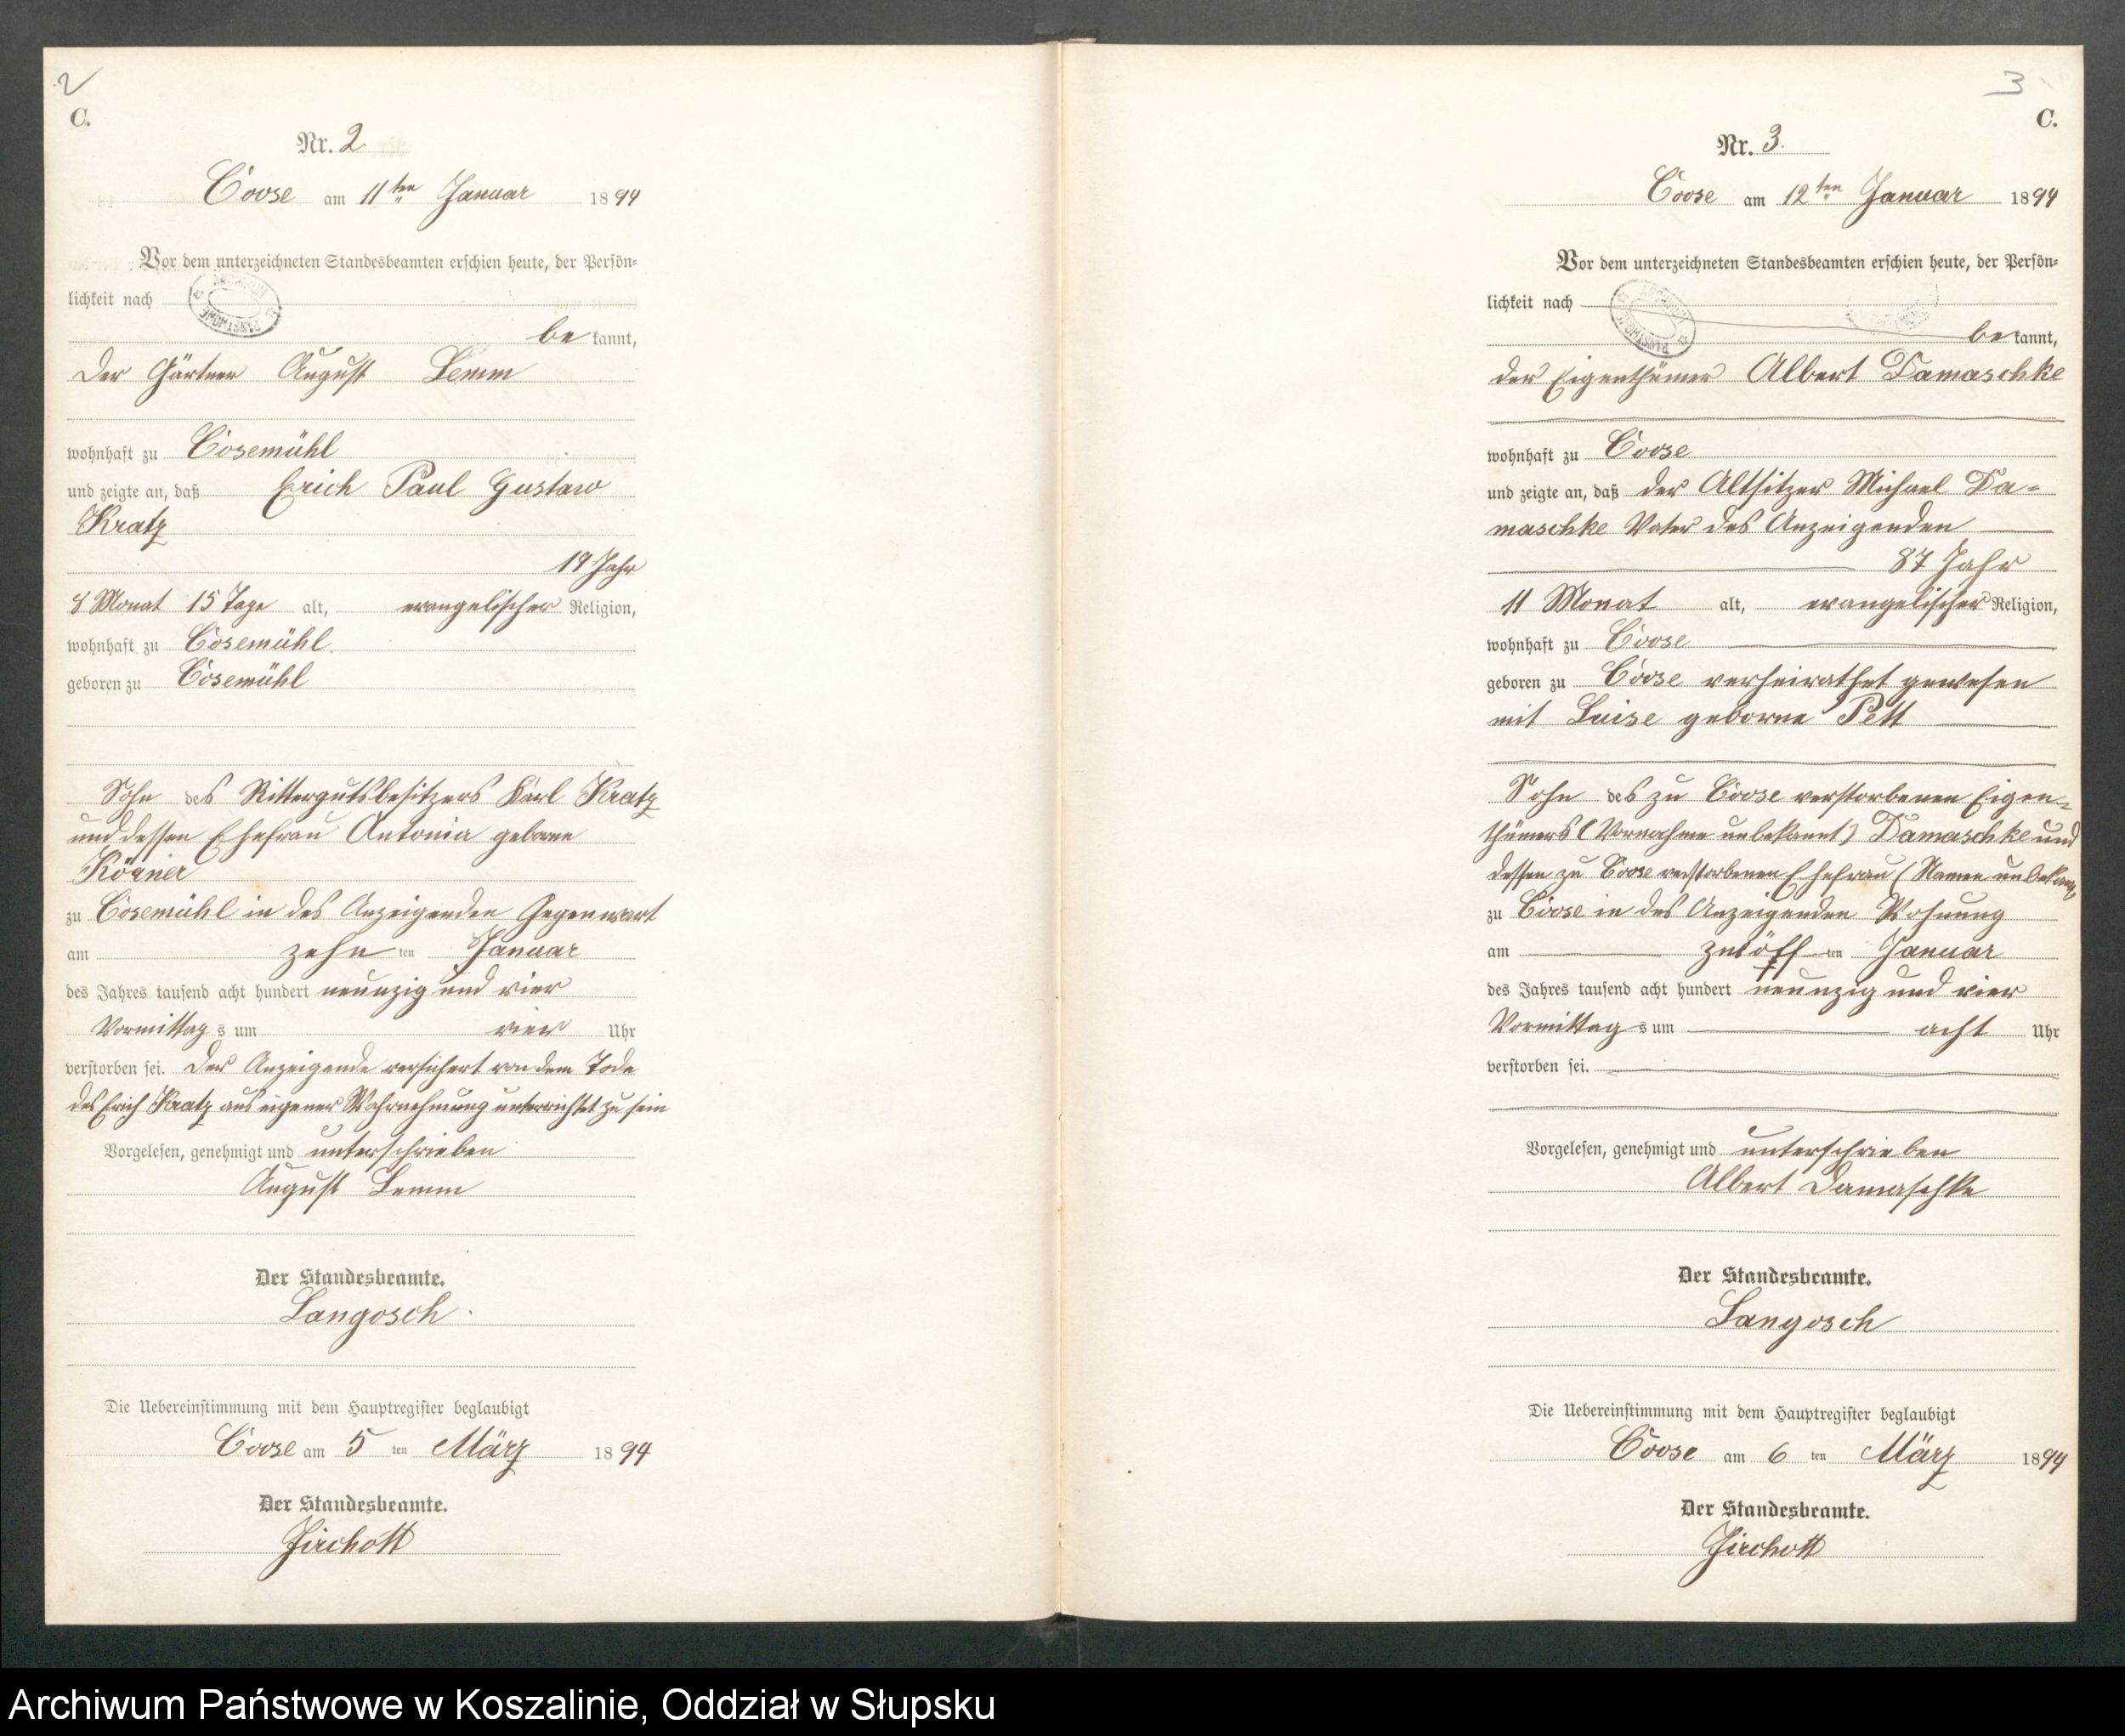 2
C.
Nr. 2.
Coose am 11ten Januar 1894
Vor dem unterzeichneten Standesbeamten erschien heute, der Persön-
lichkeit nach
bekannt,
der Gärtner August Lemm
wohnhaft zu Cosemühl
und zeigte an, daß Erich Paul Gustav
Kratz
19 Jahr
8 Monat 15 Tage alt, evangelischer Religion,
wohnhaft zu Cosemühl.
geboren zu Cosemühl
Sohn des Rittergutsbesitzers Karl Kratz
und dessen Ehefrau Antonia geborne
zu Cosemühl in des Anzeigenden Gegenwart
am zehnten Januar
des Jahres tausend acht hundert neunzig und vier
Vormittags um vier Uhr
verstorben sei. Der Anzeigende versichert von dem Tode
des Erich Kratz aus eigener Wahrnehmung unterrichtet zu sein
Vorgelesen, genehmigt und unterschrieben
August Lemm
Der Standesbeamte.
Langosch.
Die Uebereinstimmung mit dem Hauptregister beglaubigt
Coose am 5ten März 1894
Der Standesbeamte.
3
C.
Nr. 3.
Coose am 12ten Januar 1894
Vor dem unterzeichneten Standesbeamten erschien heute, der Persön-
lichkeit nach
bekannt,
der Eigenthümer Albert Damaschke
wohnhaft zu Coose
und zeigte an, daß der Altsitzer Michael Da-
maschke Vater des Anzeigenden
87 Jahr
11 Monat alt, evangelischer Religion,
wohnhaft zu Coose
geboren zu Coose verheirathet gewesen
mit Luise geborne Pett
Sohn des zu Coose verstorbenen Eigen-
thümers (Vorname unbekannt) Damaschke und
dessen zu Coose verstorbenen Ehefrau (Namen unbekannt)
zu Coose in des Anzeigenden Wohnung
am zwölften Januar
des Jahres tausend acht hundert neunzig und vier
Vormittags um acht Uhr
verstorben sei.
Vorgelesen, genehmigt und unterschrieben
Albert Damaschke
Der Standesbeamte.
Langosch
Die Uebereinstimmung mit dem Hauptregister beglaubigt
Coose am 6ten März 1894
Der Standesbeamte.
Archiwum Państwowe w Koszalinie, Oddział w Słupsku